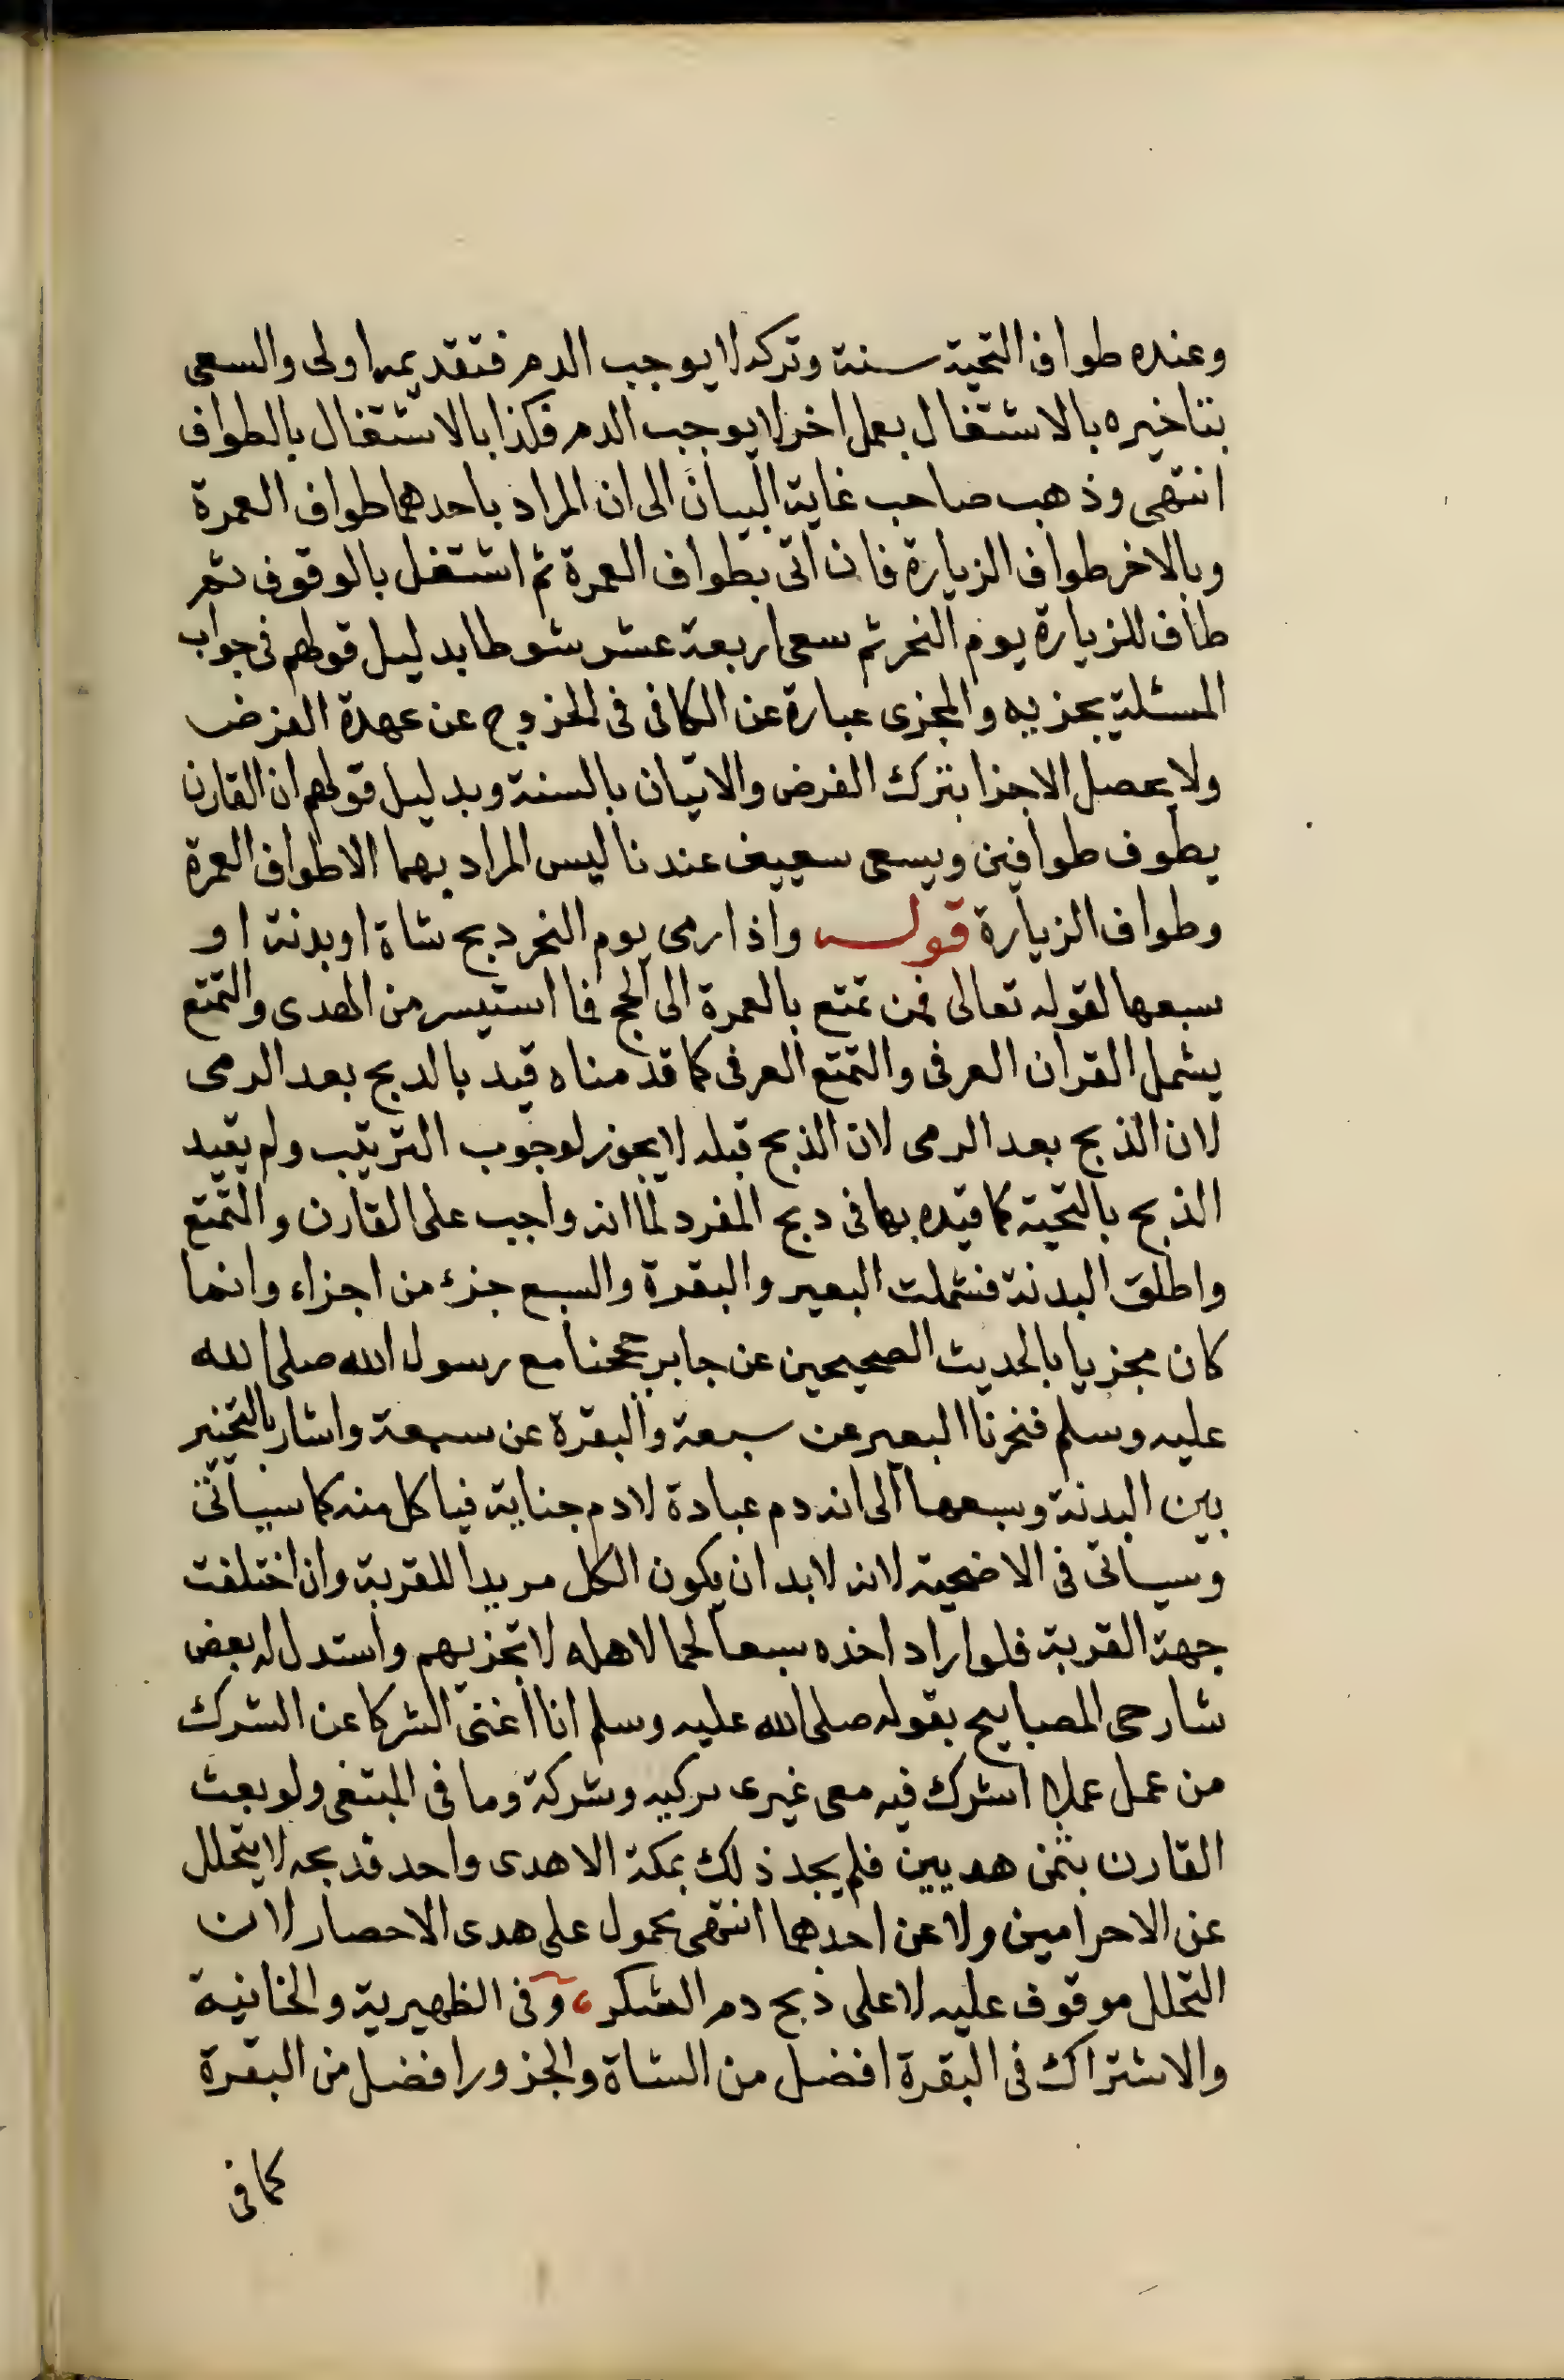 وعنده طواف التحية سنة وتركه لا يوجب الدم فتقديمه اولى والسعى
بتاخيره بالاشتغال بعمل اخر لا يوجب الدم فكذا بالاشتغال بالطواف
انتهى وذهب صاحب غاية البيان الى ان المراد باحدهما طواف العمرة
وبالاخر طواف الزيارة فان اتى بطواف العمرة ثم اشتغل بالوقوف ثم
طاف للزيارة يوم النحر ثم سعى اربعة عشر شوطا بدليل قولهم فى جواب
المسئلة يجزيه والمجزى عبارة عن الكافى فى الخروج عن عهدة الفرض
ولا يحصل الاجزا بترك الفرض والاتيان بالسنة وبدليل قولهم ان القارن
يطوف طوافين ويسعى سعيين عندنا ليس المراد بهما الا طواف العمرة
وطواف الزيارة قوله واذا رمى يوم النحر دبح شاة او بدنة او
سبعها لقوله تعالى فمن تمتع بالعمرة الى الحج فما استيسر من الهدى والتمتع
يشمل القران العرفى والتمتع العرفى كما قدمناه قيد بالدبح بعد الرمى
لان الذبح بعد الرمى لان الذبح قبله لا يجوز لوجوب الترتيب ولم يقيد
الذبح بالتحية كما قيده بها فى دبح المفرد لما انه واجب على القارن والتمتع
واطلق البدنة فشملت البعير والبقرة والسبع جزء من اجزاء وانما
كان مجزيا بالحديث الصحيحين عن جابر حججنا مع رسول الله صلى الله
عليه وسلم فنحرنا البعير عن سبعة والبقرة عن سبعة واشار بالتخيير
بين البدنة وسبعها الى انه دم عبادة لا دم جناية فيا كل منه كما سياتى
وسياتى فى الاضحية لانه لا بد ان يكون الكل مريدا للقربة وان اختلفت
جهة القربة فلو اراد احده سبعا لحما لاهله لا تجزيهم واستدل له بعض
شارحى المصابيح بقوله صلى الله عليه وسلم انا اغنى الشركا عن الشرك
من عمل عملا اشرك فيه معى غيرى تركيه وشركة وما فى المبتغى ولو بعث
القارن بثمن هديين فلم يجد ذلك بمكة الا هدى واحد فدبحه لا يتحلل
عن الاحرامين ولا عن احدهما انتهى محمول على هدى الاحصار لان
التحلل موقوف عليه لا على ذبح دم الشكر، وفى الظهيرية والخانية
والاشتراك فى البقرة افضل من الشاة والجزور افضل من البقرة
كما فى